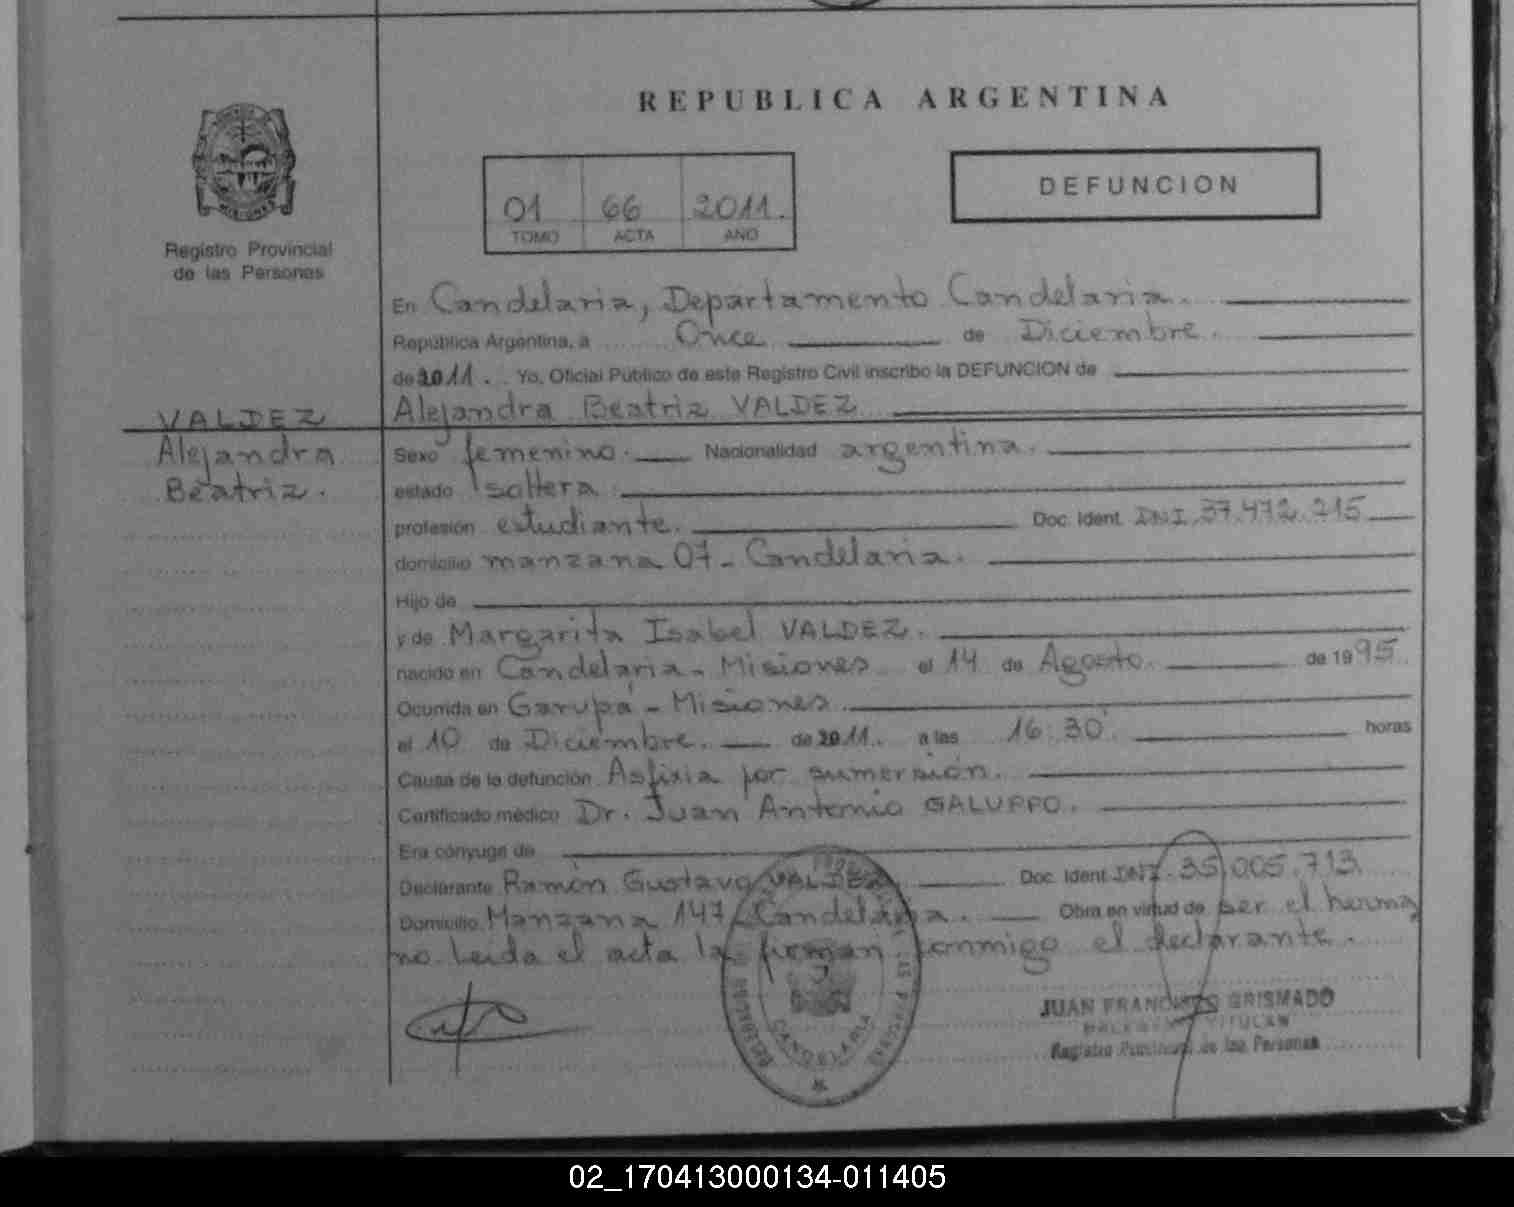 REPUBLICA ARGENTINA
DEFUNCION
01 66 2011.
TOMO ACTA AÑO
Registro Provincial
de las Personas
En Candelaria, Departamento Candelaria.
República Argentina, a Once de Diciembre.
de 2011. Yo, Oficial Público de este Registro Civil inscribo la DEFUNCION de
VALDEZ
Alejandra
Beatriz.
Alejandra Beatriz VALDEZ
Sexo femenino. Nacionalidad argentina.
estado soltera.
profesión estudiante. Doc. Ident. DNI. 37.472.215
domicilio manzana 07 - Candelaria.
Hijo de
y de Margarita Isabel VALDEZ.
nacido en Candelaria - Misiones el 14 de Agosto. de 1995.
Ocurrida en Garupá - Misiones.
el 10 de Diciembre. de 2011. a las 16:30 horas
Causa de la defunción Asfixia por sumersión.
Certificado médico Dr. Juan Antonio GALUPPO.
Era cónyuge de
Declarante Ramón Gustavo VALDEZ Doc. Ident. DNI. 35.005.713
Domicilio Manzana 147 - Candelaria. Obra en virtud de ser el herma
no. Leída el acta la firman conmigo el declarante.
CANDELARIA
JUAN FRANCISCO GRISMADO
TITULAR
Registro Provincial de las Personas
02_170413000134-011405